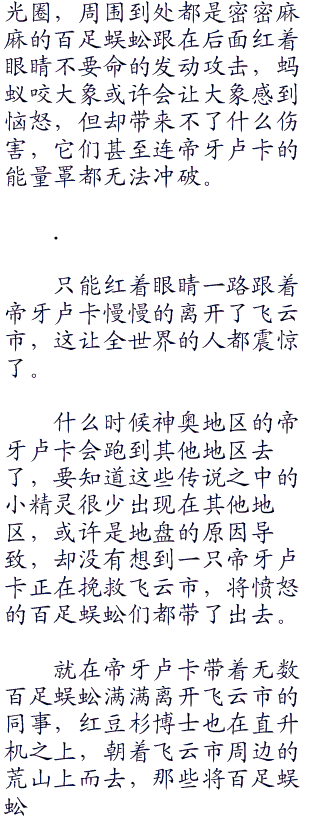 光圈，周围到处都是密密麻
麻的百足蜈蚣跟在后面红着
眼睛不要命的发动攻击，蚂
蚁咬大象或许会让大象感到
恼怒，但却带来不了什么伤
害，它们甚至连帝牙卢卡的
能量罩都无法冲破。
.
只能红着眼睛一路跟着
帝牙卢卡慢慢的离开了飞云
市，这让全世界的人都震惊
了。
什么时候神奥地区的帝
牙卢卡会跑到其他地区去
了，要知道这些传说之中的
小精灵很少出现在其他地
区，或许是地盘的原因导
致，却没有想到一只帝牙卢
卡正在挽救飞云市，将愤怒
的百足蜈蚣们都带了出去。
就在帝牙卢卡带着无数
百足蜈蚣满满离开飞云市的
同事，红豆杉博士也在直升
机之上，朝着飞云市周边的
荒山上而去，那些将百足蜈
蚣